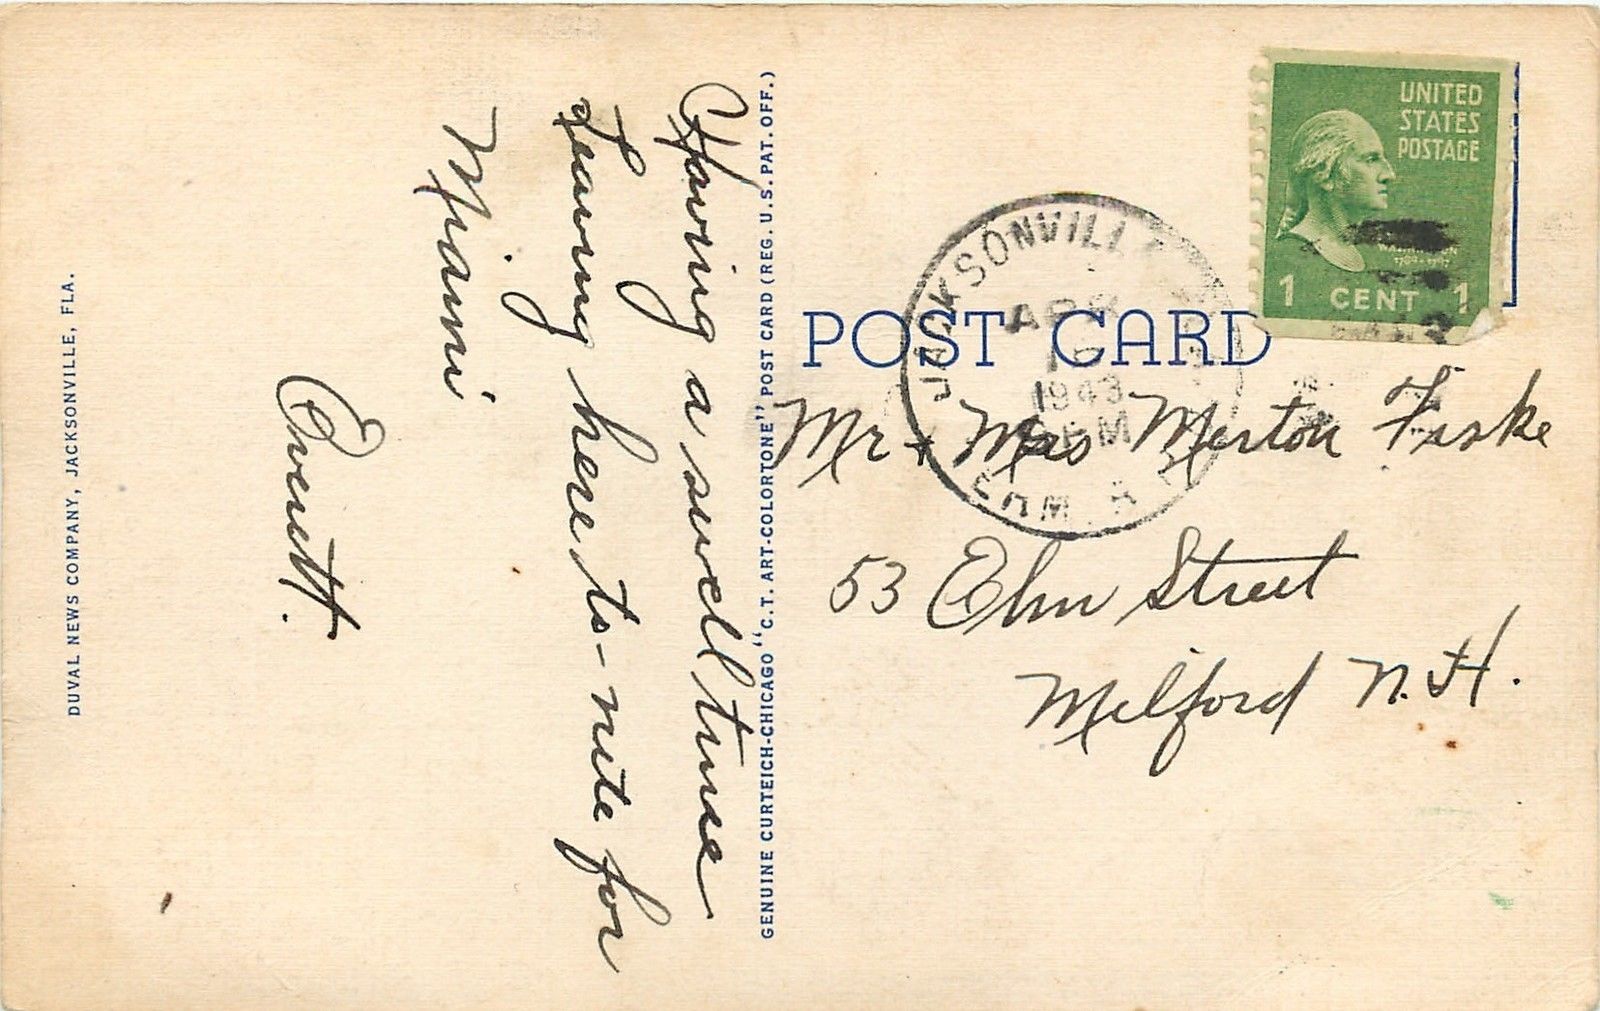 Having a swell time
Leaving here to-nite for
Miami
Everett.
DUVAL NEWS COMPANY, JACKSONVILLE, FLA.
GENUINE CURTEICH-CHICAGO "C.T. ART-COLORTONE" POST CARD (REG. U.S. PAT. OFF.)
POST CARD
UNITED
STATES
POSTAGE
1 CENT 1
JACKSONVILLE
APR
1943
PM
Mr + Mrs Merton Fiske
53 Elm Street
Milford N.H.